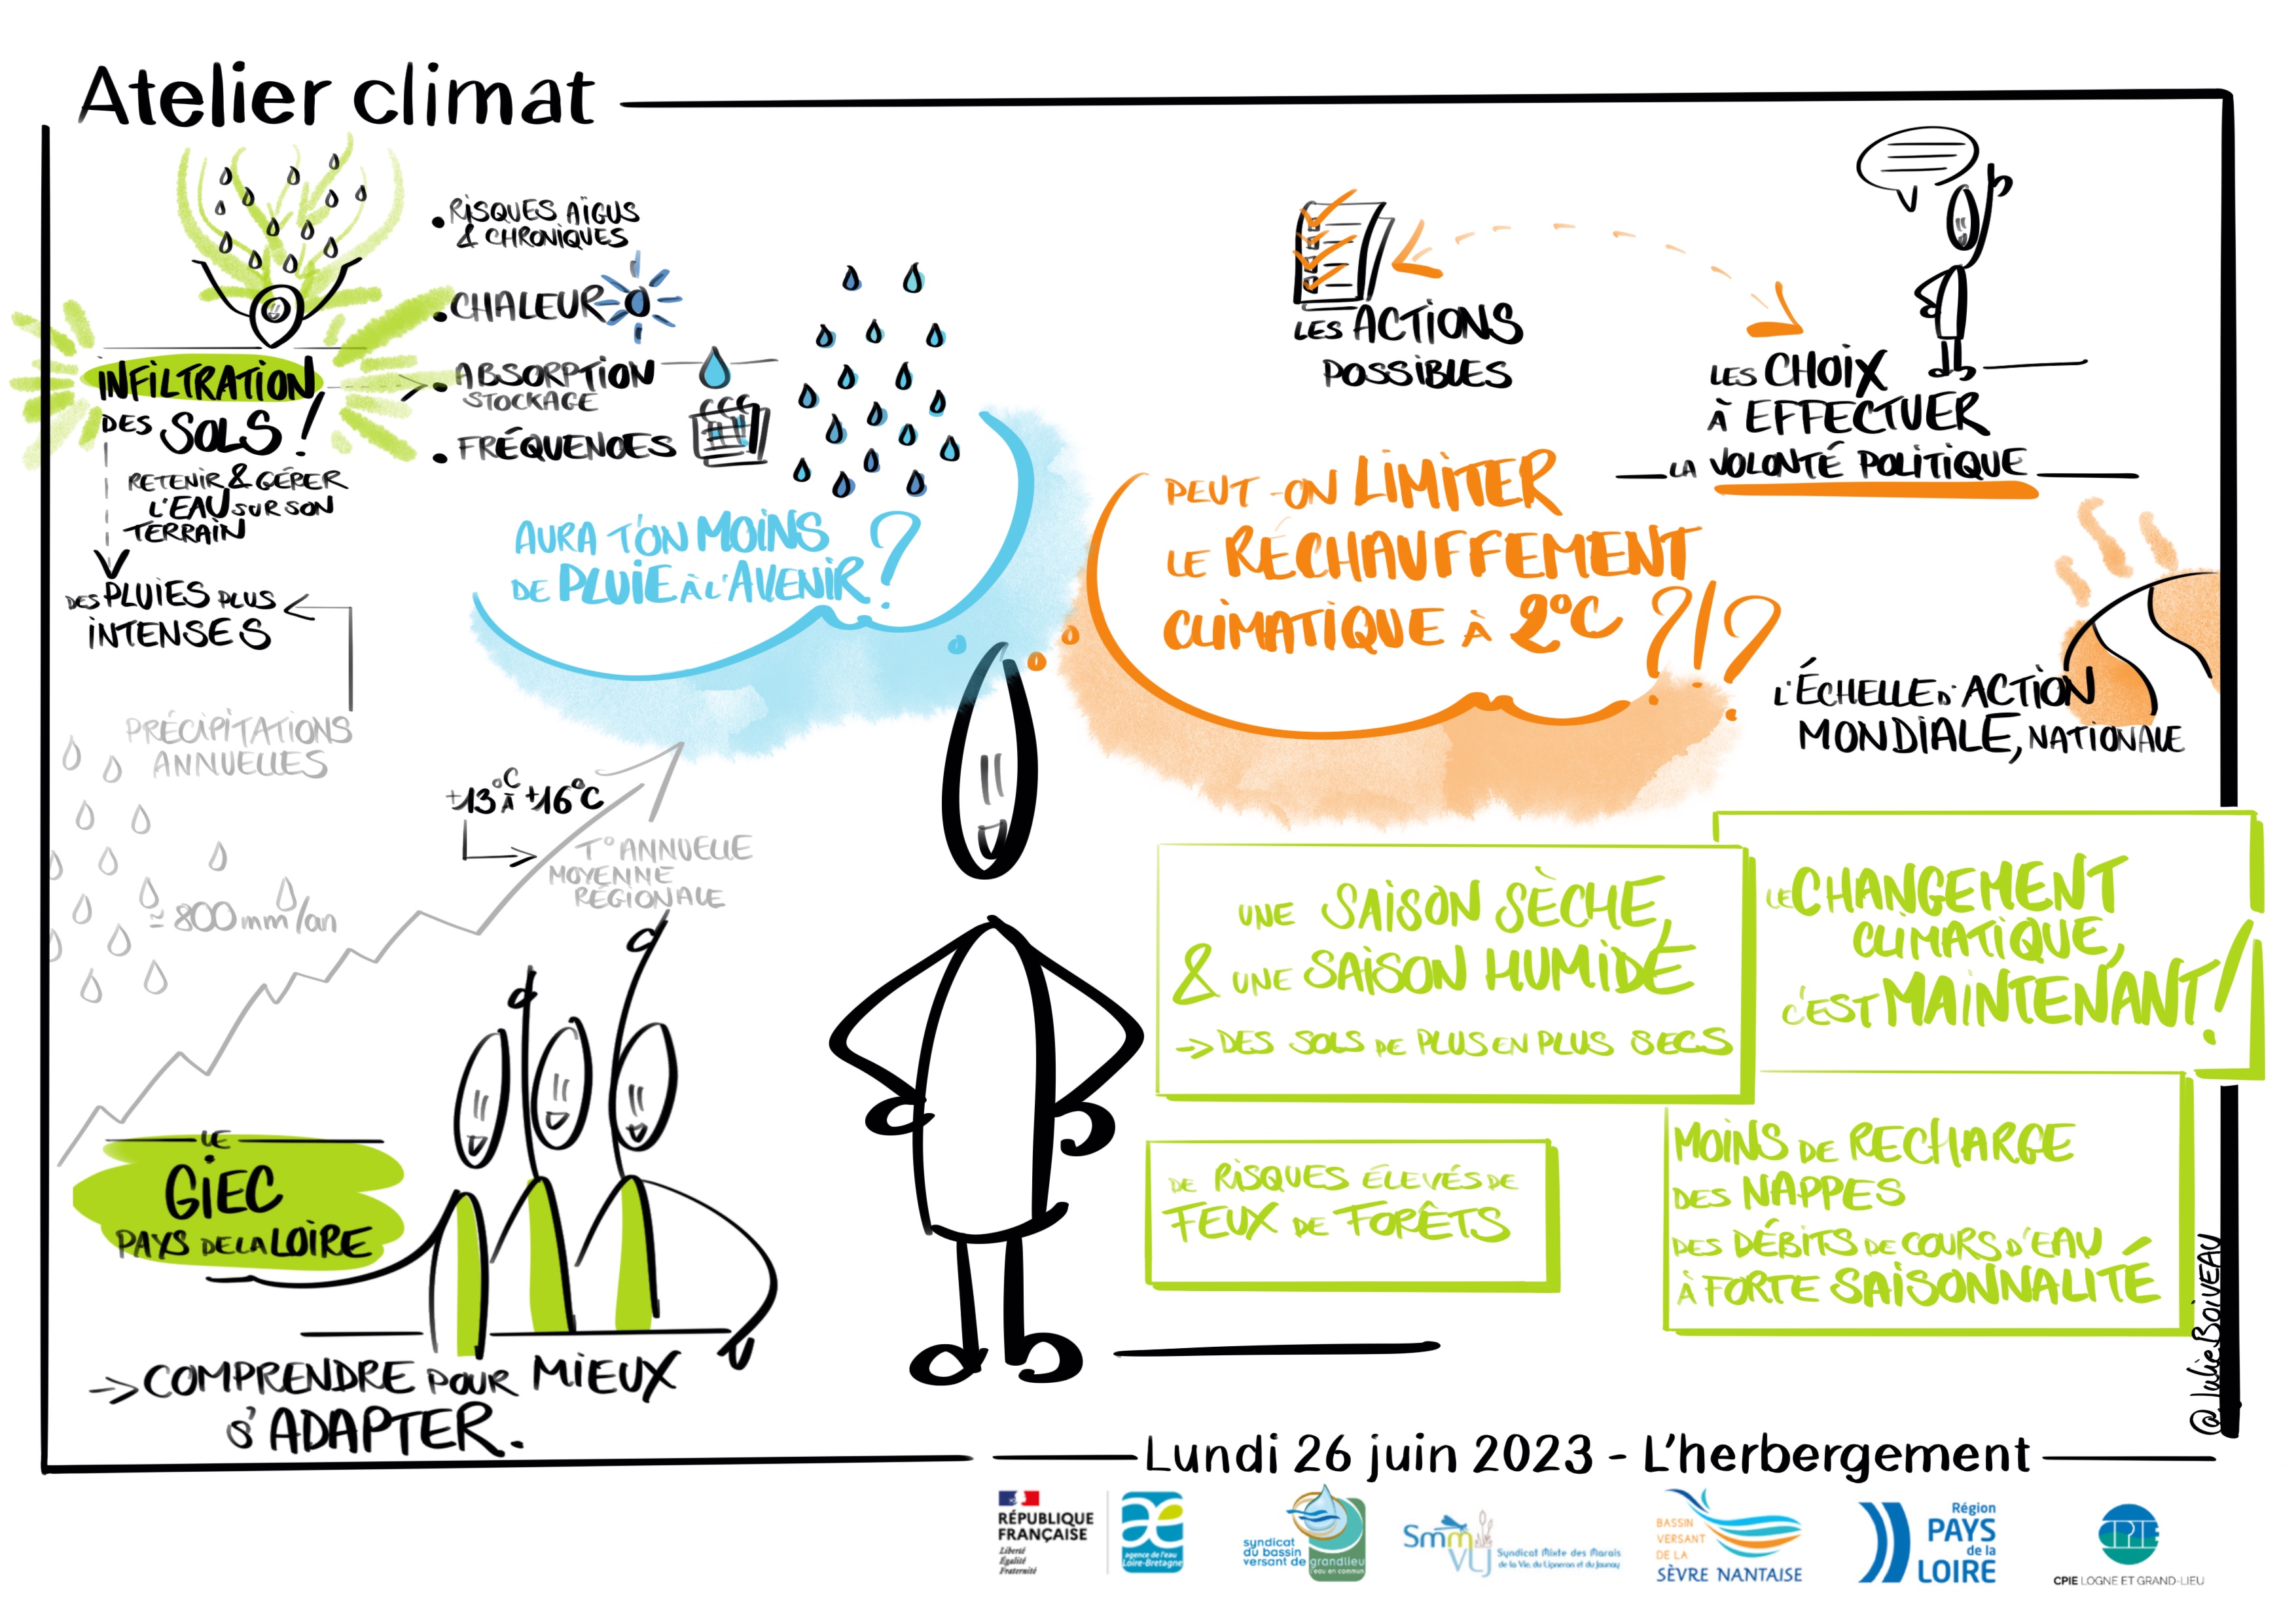 Atelier climat
• RISQUES AÏGUS
& CHRONIQUES
• CHALEUR
• ABSORPTION
STOCKAGE
• FRÉQUENCES
INFILTRATION
DES SOLS !
RETENIR & GÉRER
L'EAU SUR SON
TERRAIN
DES PLUIES PLUS
INTENSES
PRÉCIPITATIONS
ANNUELLES
≃ 800 mm/an
+13°C À +16°C
T° ANNUELLE
MOYENNE
RÉGIONALE
AURA T'ON MOINS
DE PLUIE À L'AVENIR ?
LES ACTIONS
POSSIBLES
LES CHOIX
À EFFECTUER
LA VOLONTÉ POLITIQUE
PEUT-ON LIMITER
LE RÉCHAUFFEMENT
CLIMATIQUE À 2°C ?!?
L'ÉCHELLE D'ACTION
MONDIALE, NATIONALE
UNE SAISON SÈCHE,
& UNE SAISON HUMIDE
→ DES SOLS DE PLUS EN PLUS SECS
LE CHANGEMENT
CLIMATIQUE,
C'EST MAINTENANT !
DE RISQUES ÉLEVÉS DE
FEUX DE FORÊTS
MOINS DE RECHARGE
DES NAPPES
DES DÉBITS DE COURS D'EAU
À FORTE SAISONNALITÉ
LE
GIEC
PAYS DE LA LOIRE
→ COMPRENDRE POUR MIEUX
S'ADAPTER.
@JulieBOIVEAU
Lundi 26 juin 2023 - L'herbergement
RÉPUBLIQUE
FRANÇAISE
Liberté
Égalité
Fraternité
agence de l'eau
Loire-Bretagne
syndicat
du bassin
versant de grandlieu
l'eau en commun
SmmVLJ
Syndicat Mixte des Marais
de la Vie, du Ligneron et du Jaunay
BASSIN
VERSANT
DE LA
SÈVRE NANTAISE
Région
PAYS
de la
LOIRE
CPIE
CPIE LOGNE ET GRAND-LIEU